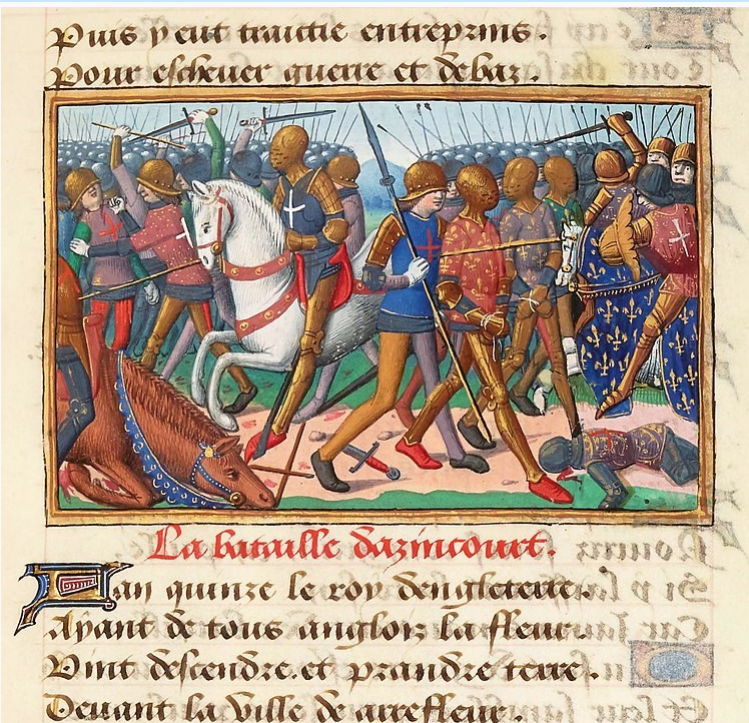 Puis y eut traictie entreprins.
Pour escheuer guerre et debaz.
La bataille dazincourt.
Lan quinze le roy dengleterre.
Ayant de tous anglois la fleur.
Vint descendre et prandre terre.
Deuant la ville de arrefleur.